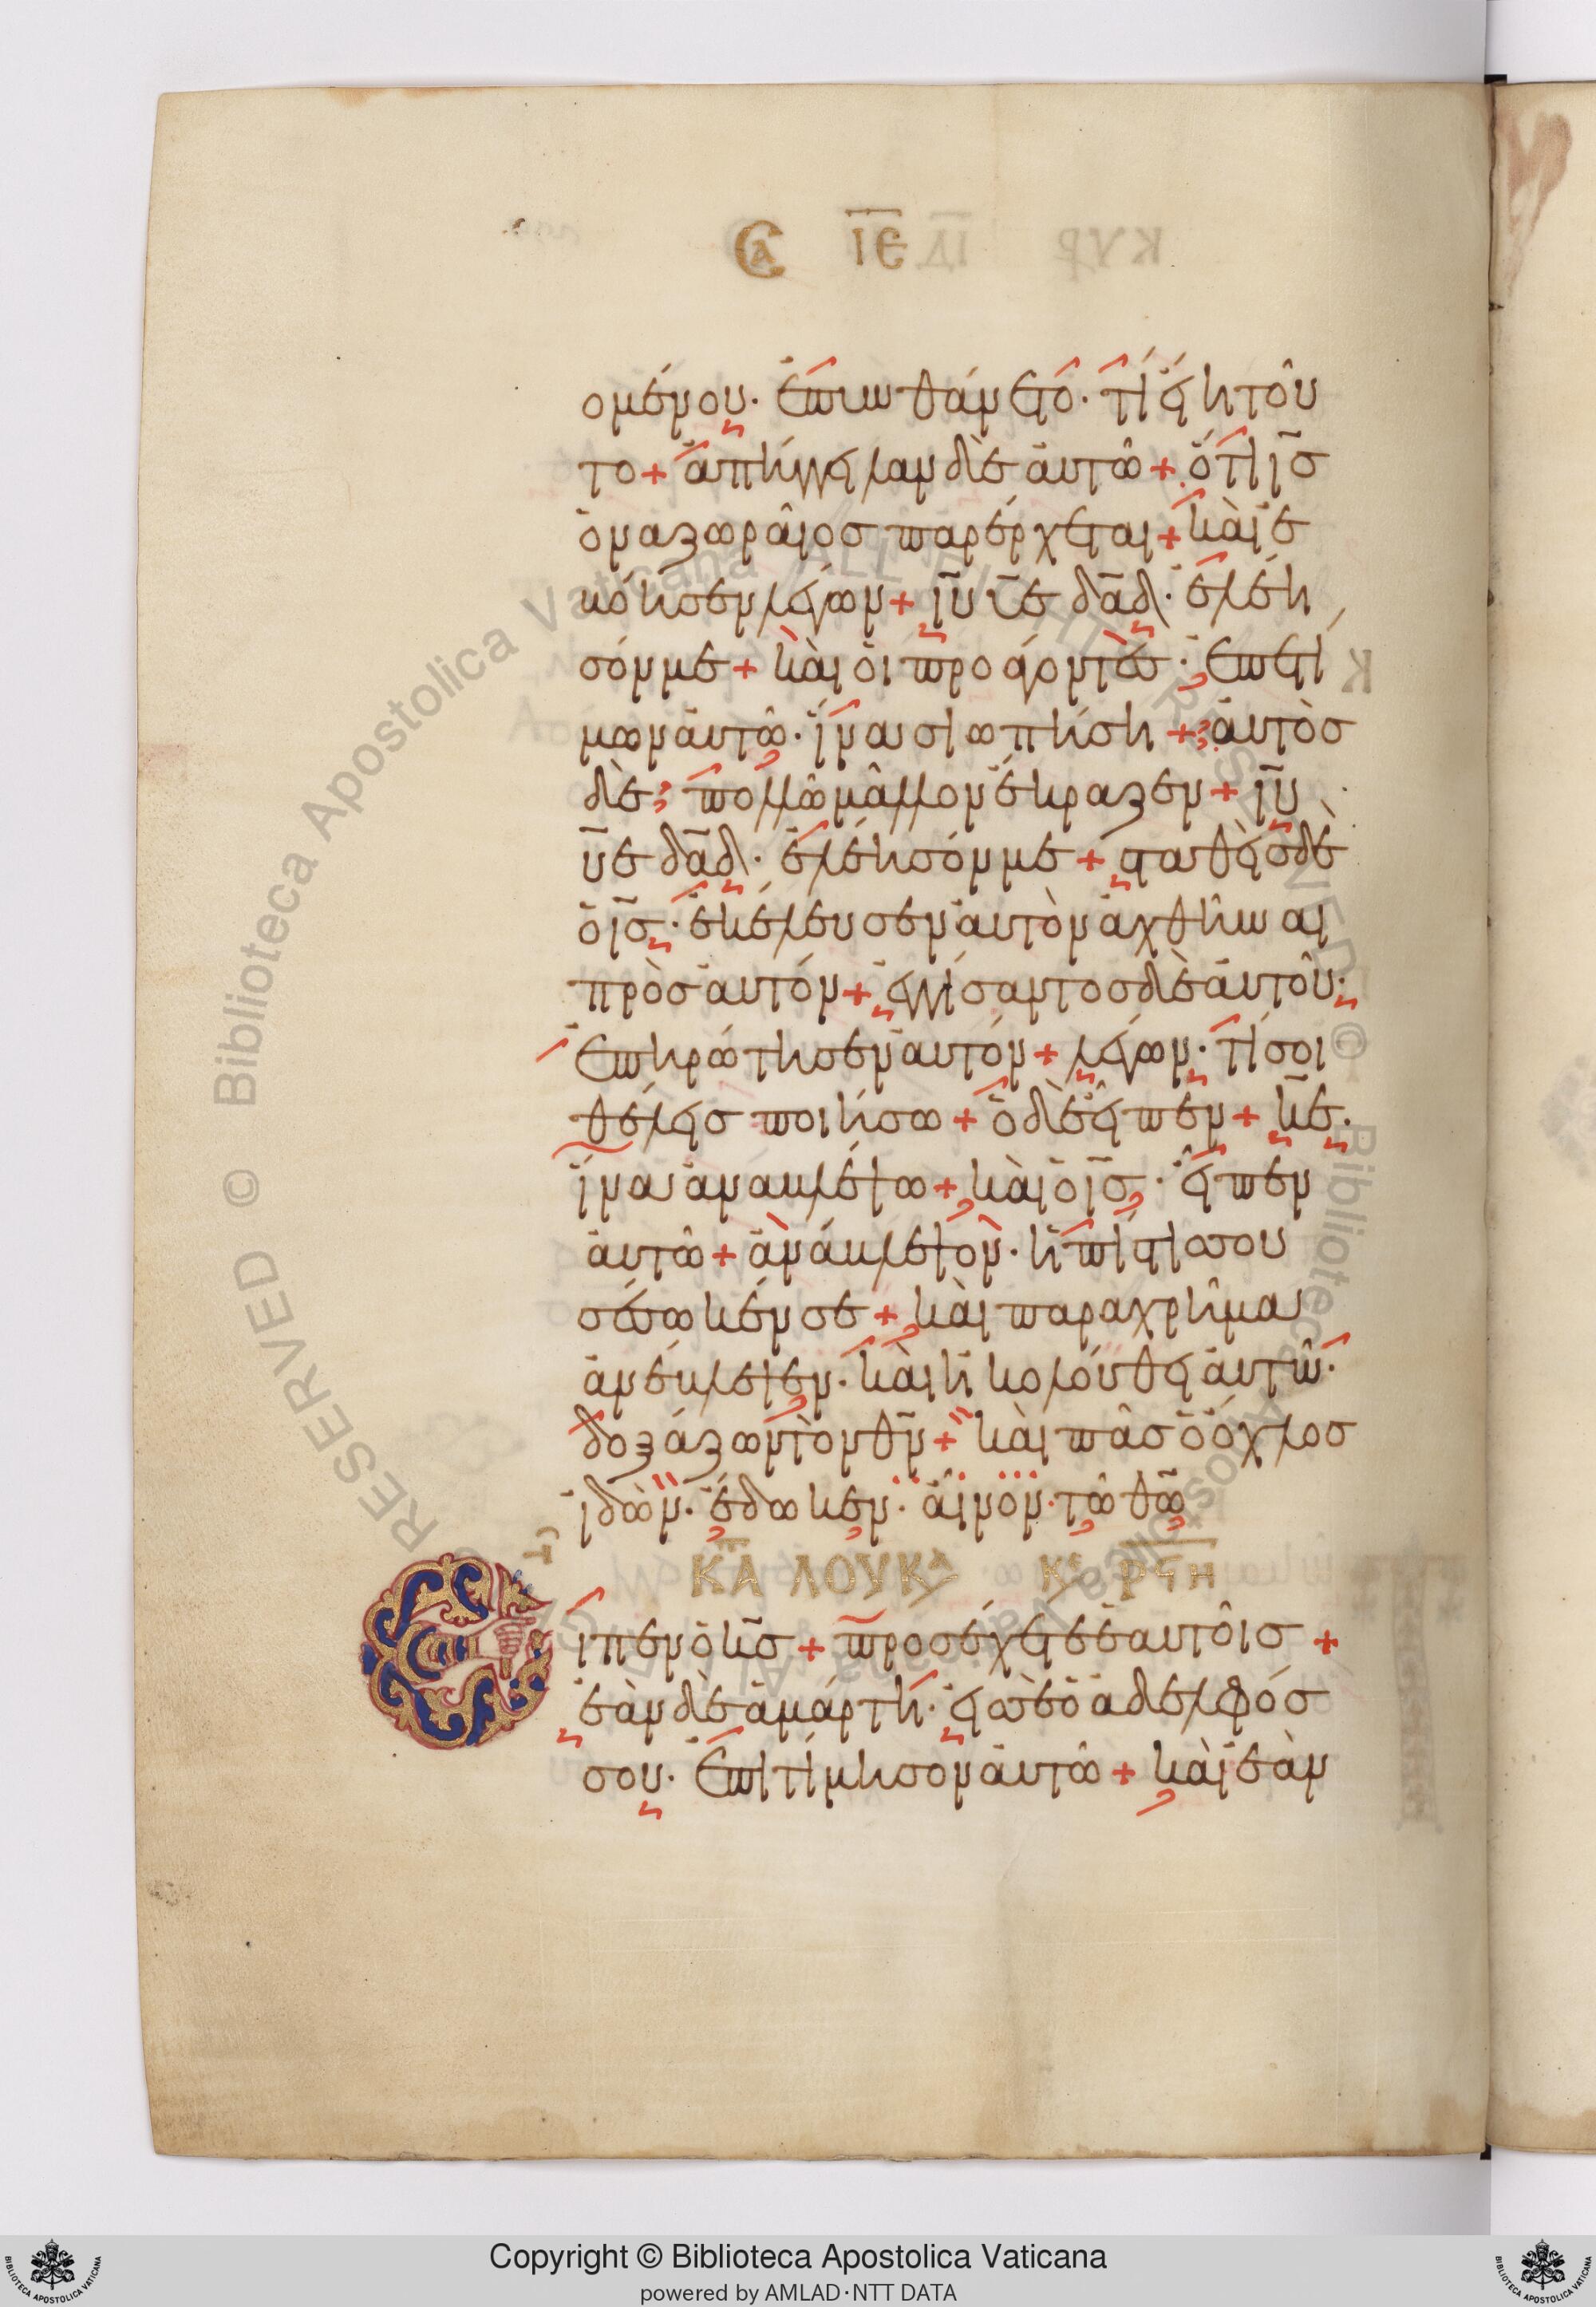 ϹΑ ΙΕ
ομένου· ἐπυνθάνετο· τί εἴη τοῦ
το + ἀπήγγειλαν δὲ αὐτῶ + ὅτι ις̅
ὁ ναζωραῖος παρέρχεται + καὶ ἐ
βόησεν λέγων + ιυ̅ υε̅ δαδ̅· ἐλέη
σόν με + καὶ οἱ προάγοντες· ἐπετί
μων αὐτῶ· ἵνα σιωπήση + αὐτὸς
δὲ πολλῶ μᾶλλον ἔκραζεν + ιυ̅
υε̅ δαδ̅· ἐλέησόν με + σταθεὶς δὲ
ὁ ις̅· ἐκέλευσεν αὐτὸν ἀχθῆναι
πρὸς αὐτόν + ἐγγίσαντος δὲ αὐτοῦ·
ἐπηρώτησεν αὐτόν + λέγων· τί σοι
θέλεις ποιήσω + ὁ δὲ εἶπεν + κε̅·
ἵνα ἀναβλέψω + καὶ ὁ ις̅· εἶπεν
αὐτῶ + ἀνάβλεψον· ἡ πίστις σου
σέσωκέν σε + καὶ παραχρῆμα
ἀνέβλεψεν· καὶ ἠκολούθει αὐτῶ·
δοξάζων τὸν θν̅ + καὶ πᾶς ὁ ὄχλος
ἰδὼν· ἔδωκεν· αἶνον· τῶ θω̅
Κ̅ ΛΟΥΚΑ ΚΕ
Εἶπεν ὁ κς̅ + προσέχετε ἑαυτοῖς +
ἐὰν δὲ ἁμάρτη· εἰς σὲ ὁ ἀδελφός
σου· ἐπιτίμησον αὐτῶ + καὶ ἐὰν
Copyright © Biblioteca Apostolica Vaticana
powered by AMLAD·NTT DATA